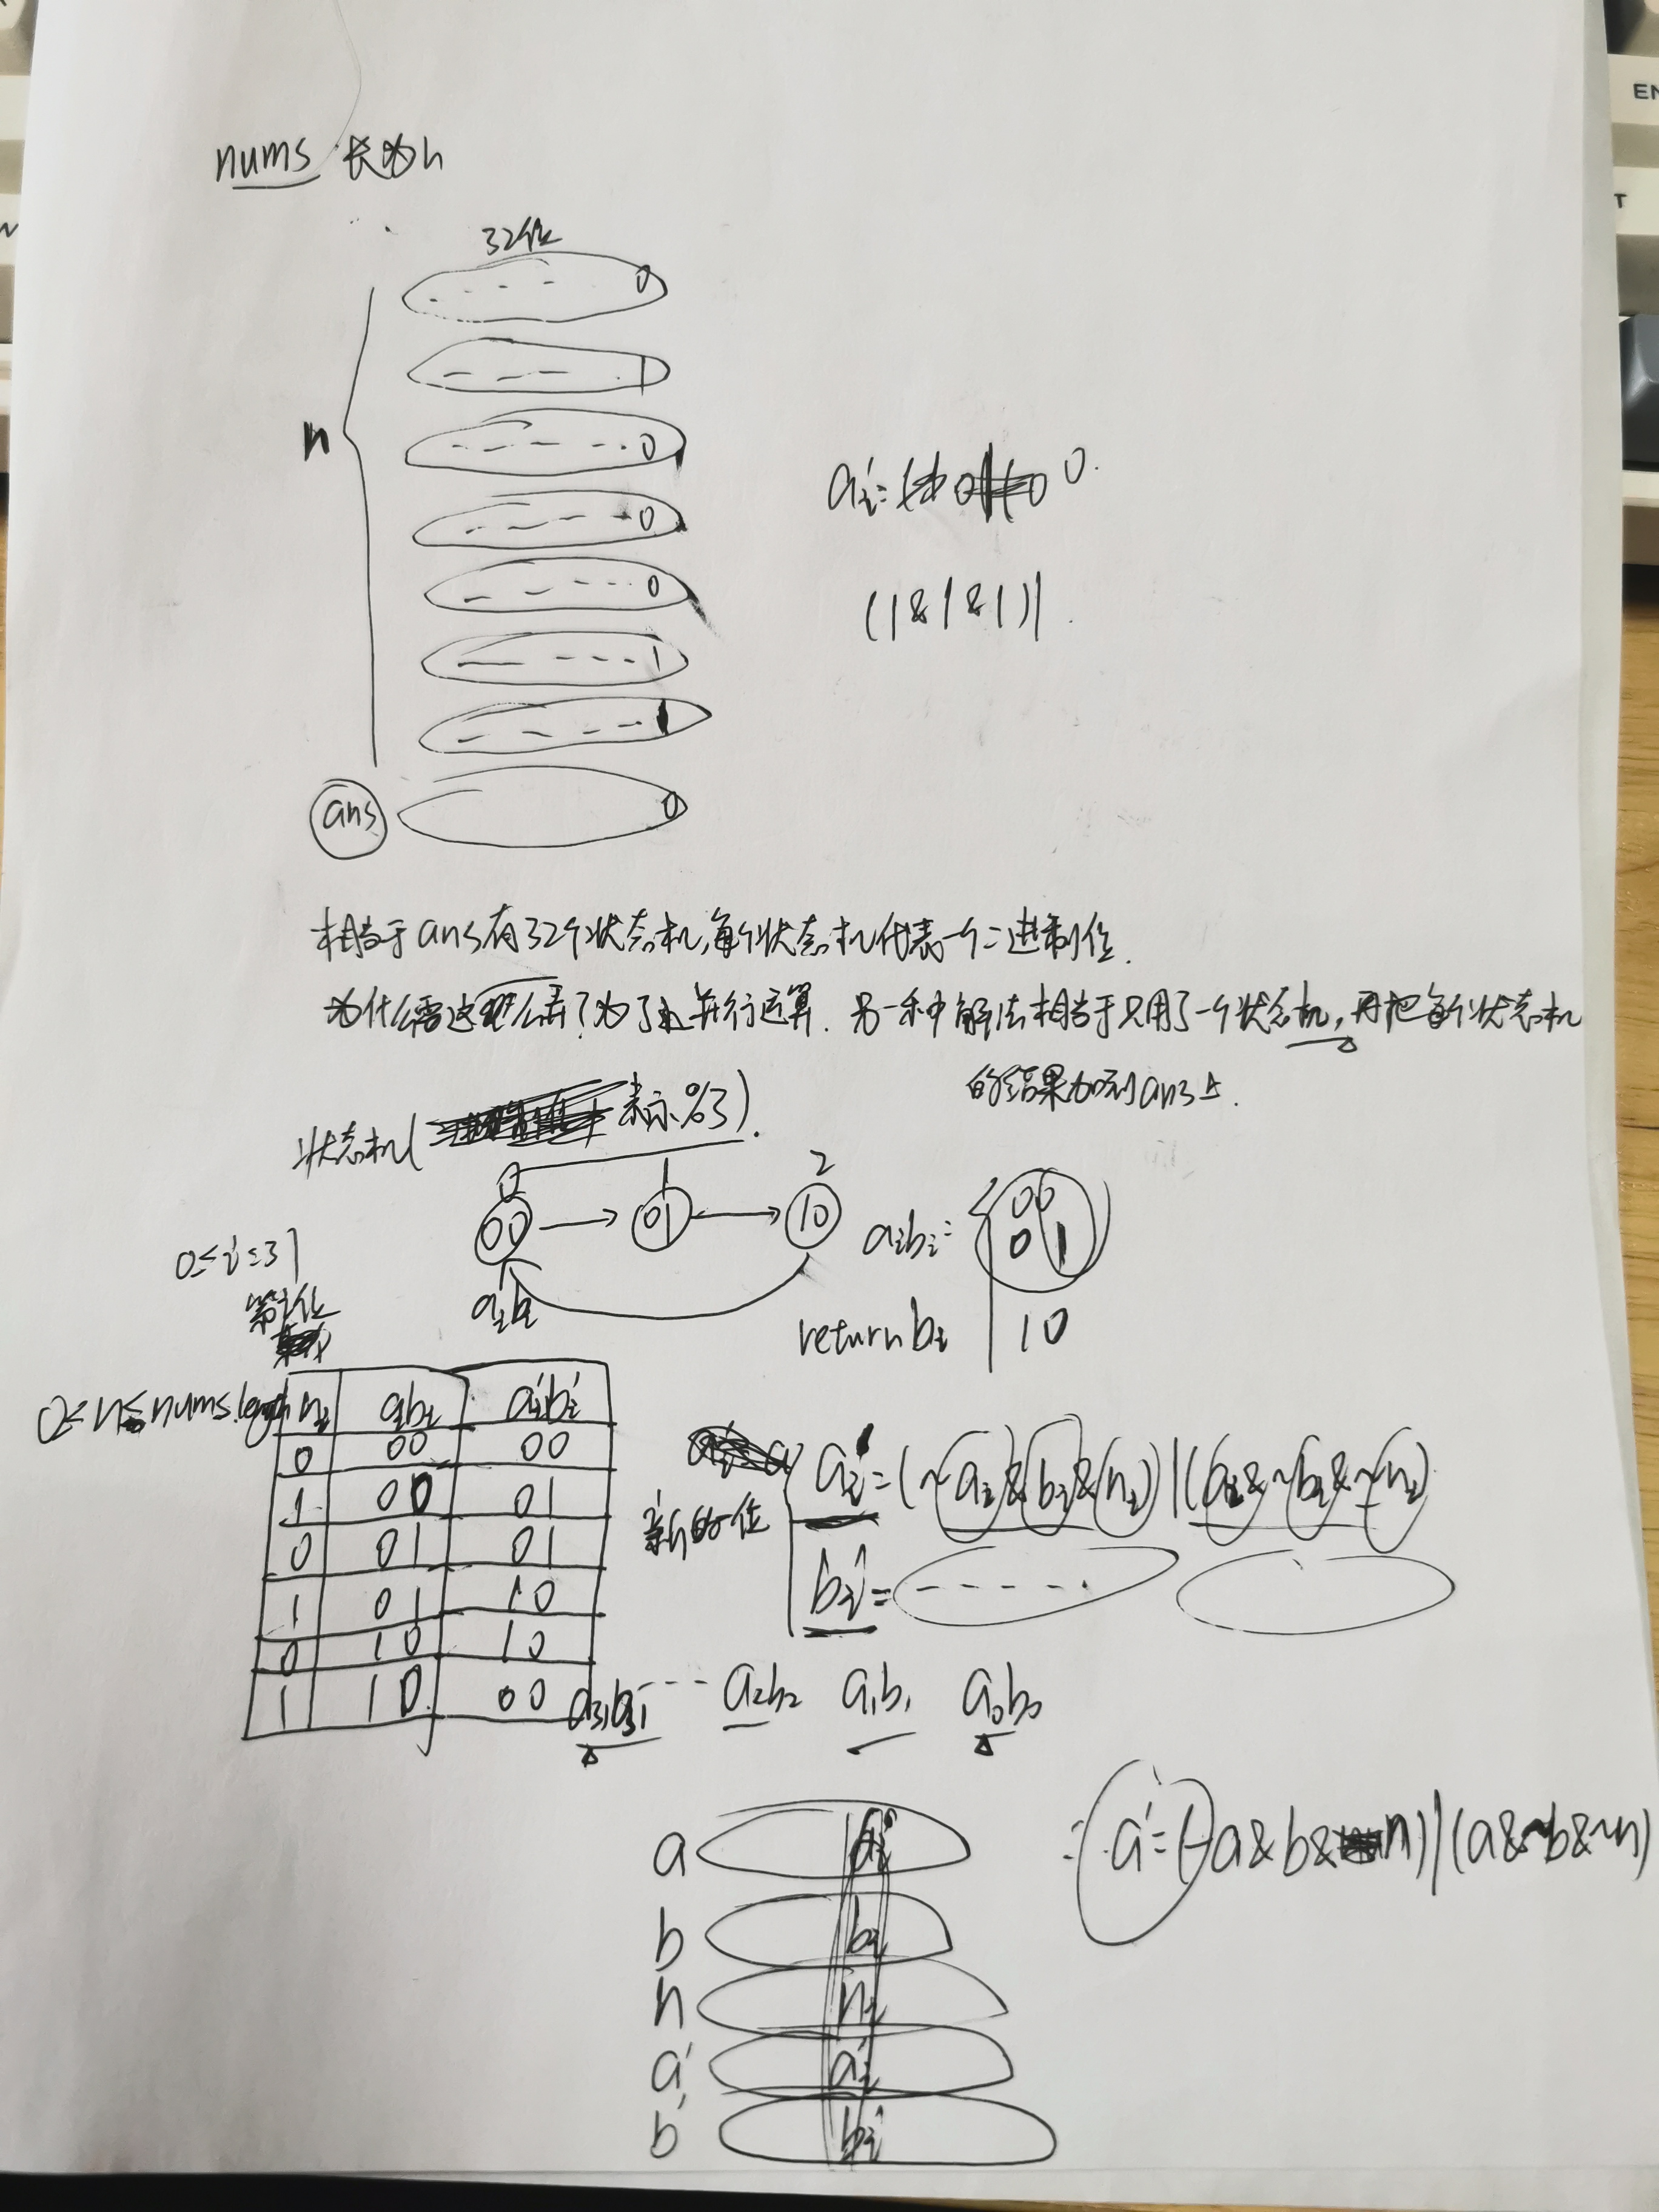 nums 长为n
32位
0
1
n
0
0
0
1
1
ans 0
aᵢ'= 0
(1&1&1)|
相当于ans有32个状态机,每个状态机代表一个二进制位.
为什么需这么弄?为了并行运算. 另一种解法相当于只用了一个状态机,再把每个状态机
的结果加到ans上.
状态机( 表示%3).
0 1 2
00 01 10
aᵢbᵢ
aᵢbᵢ= 00
01
return bᵢ 10
0≤i≤31
第i位
0≤n≤nums.length
nᵢ aᵢbᵢ aᵢ'bᵢ'
0 00 00
1 00 01
0 01 01
1 01 10
0 10 10
1 10 00
新的一位
aᵢ'=(~aᵢ&bᵢ&nᵢ)|(aᵢ&~bᵢ&~nᵢ)
bᵢ'=
a₃₁a₃₁ ---- a₂b₂ a₁b₁ a₀b₀
a aᵢ
b bᵢ
n nᵢ
a' aᵢ'
b' bᵢ'
a'=(~a&b&n)|(a&~b&~n)
EN
T